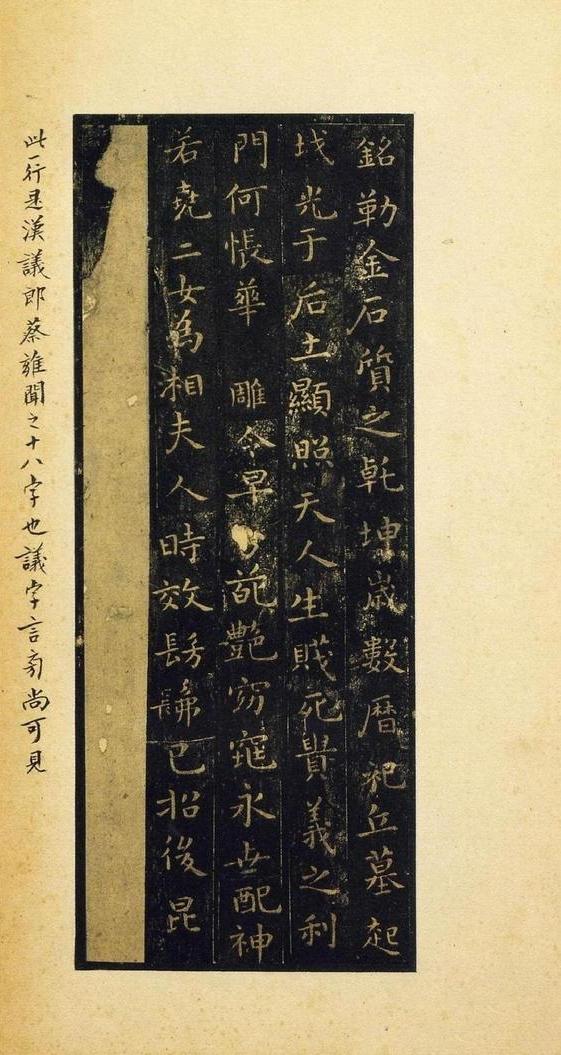 銘勒金石質之乹坤歲數曆祀丘墓起
坟光于后土顯照天人生賤死貴義之利
門何悵華雕令早分葩艷窈窕永世配神
若堯二女為相夫人時效髣髴已招後昆
此一行是漢議郎蔡雍聞之十八字也議字言旁尚可見